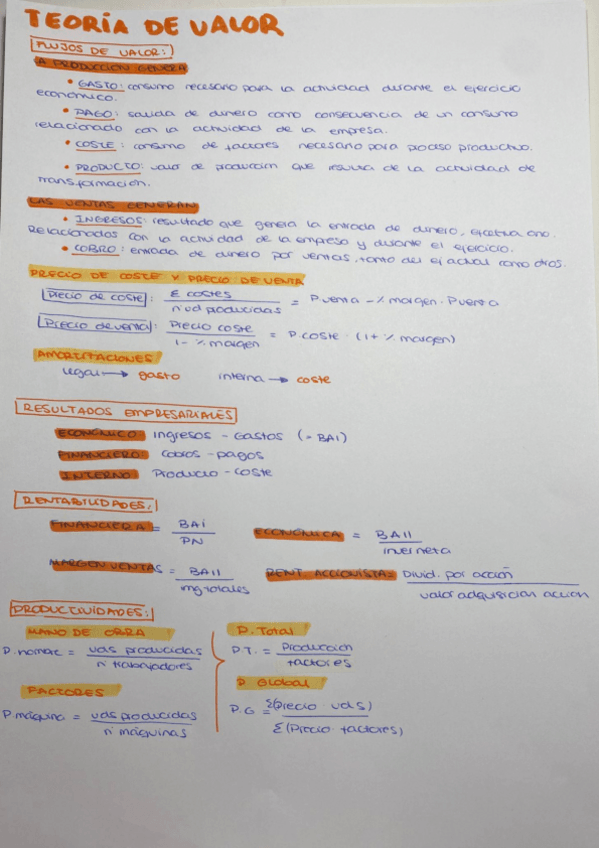 TEORÍA DE VALOR
FLUJOS DE VALOR:
LA PRODUCCIÓN GENERA
• GASTO: consumo necesario para la actividad durante el ejercicio
económico.
• PAGO: salida de dinero como consecuencia de un consumo
relacionado con la actividad de la empresa.
• COSTE: consumo de factores necesario para proceso productivo.
• PRODUCTO: valor de producción que resulta de la actividad de
transformación.
LAS VENTAS GENERAN
• INGRESOS: resultado que genera la entrada de dinero, efectiva o no.
Relacionados con la actividad de la empresa y durante el ejercicio.
• COBRO: entrada de dinero por ventas, tanto del ej actual como otros.
PRECIO DE COSTE Y PRECIO DE VENTA
Precio de coste: Σ costes / nº ud producidas = P.venta - % margen · P.venta
Precio de venta: Precio coste / 1 - % margen = P.coste · (1 + % margen)
AMORTIZACIONES
legal → gasto interna → coste
RESULTADOS EMPRESARIALES
ECONÓMICO: Ingresos - Gastos (= BAI)
FINANCIERO: Cobros - pagos
INTERNO: Producto - coste
RENTABILIDADES:
FINANCIERA = BAI / PN ECONÓMICA = BAII / inver neta
MARGEN VENTAS = BAII / ing totales RENT. ACCIONISTA = Divid. por acción / valor adquisición acción
PRODUCTIVIDADES:
MANO DE OBRA P. Total
P. = uds producidas / nº trabajadores P.T. = Producción / factores
FACTORES P. Global
P. máquina = uds producidas / nº máquinas P.G = Σ(Precio · uds) / Σ(Precio · factores)